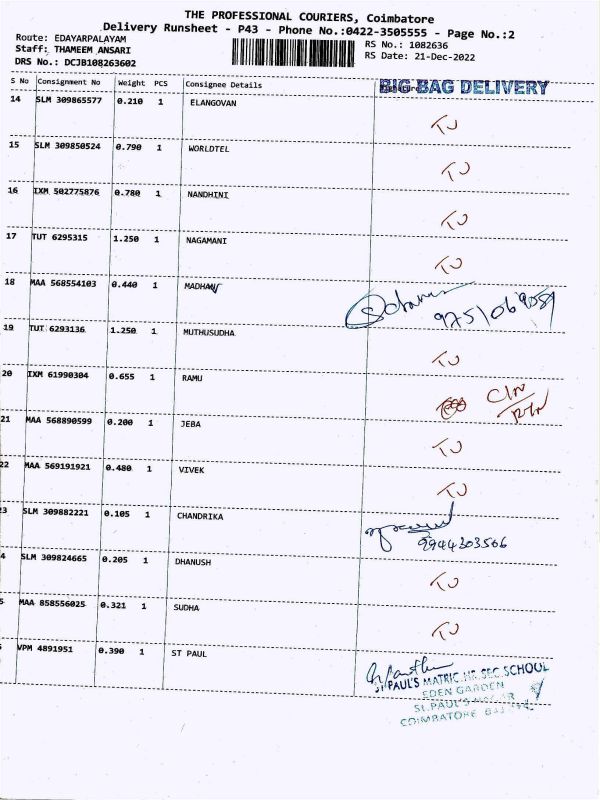 THE PROFESSIONAL COURIERS, Coimbatore
Delivery Runsheet - P43 - Phone No.:0422-3505555 - Page No.:2
Route: EDAYARPALAYAM
Staff: THAMEEM ANSARI
DRS No.: DCJB108263602
RS No.: 1082636
RS Date: 21-Dec-2022
S No Consignment No Weight PCS Consignee Details BIG BAG DELIVERY
14 SLM 309865577 0.210 1 ELANGOVAN TU
15 SLM 309850524 0.790 1 WORLDTEL TU
16 IXM 502775876 0.780 1 NANDHINI TU
17 TUT 6295315 1.250 1 NAGAMANI TU
18 MAA 568554103 0.440 1 MADHAN
19 TUT 6293136 1.250 1 MUTHUSUDHA TU
20 IXM 61990304 0.655 1 RAMU
21 MAA 568890599 0.200 1 JEBA TU
22 MAA 569191921 0.480 1 VIVEK TU
3 SLM 309882221 0.105 1 CHANDRIKA
9944303506
4 SLM 309824665 0.205 1 DHANUSH TU
5 MAA 858556025 0.321 1 SUDHA TU
VPM 4891951 0.390 1 ST PAUL
ST.PAUL'S MATRIC.HR.SEC.SCHOOL
EDEN GARDEN
ST.PAUL'S
COIMBATORE